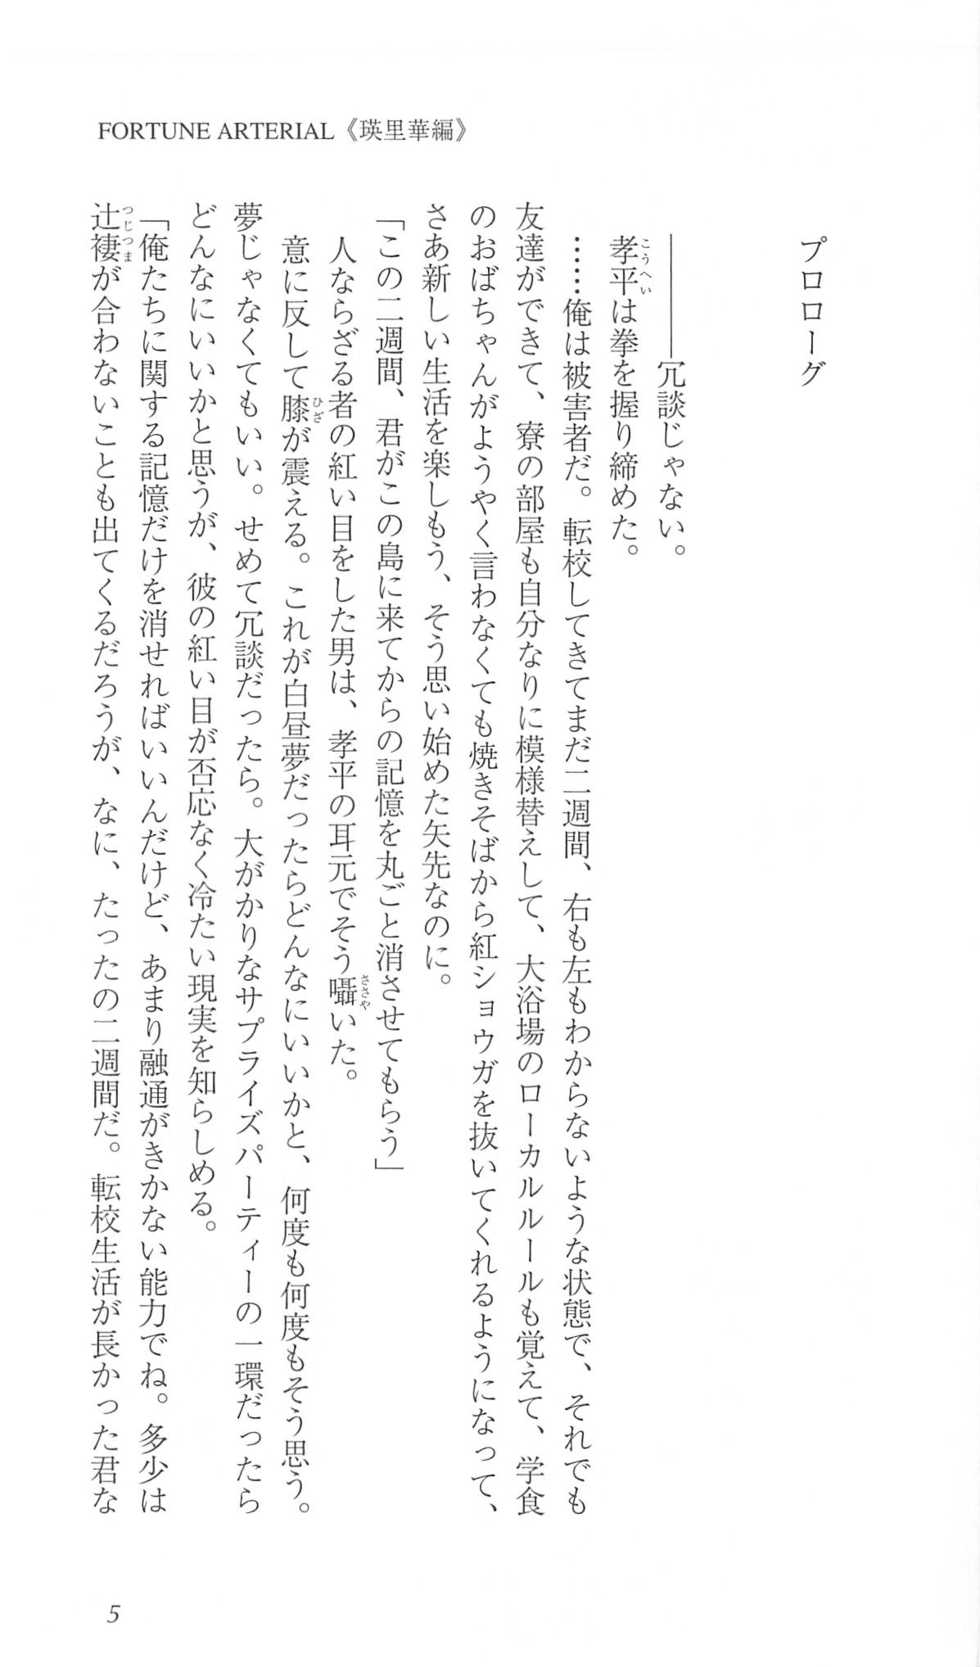 FORTUNE ARTERIAL《瑛里華編》
プロローグ
――――冗談じゃない。
孝平は拳を握り締めた。
……俺は被害者だ。転校してきてまだ二週間、右も左もわからないような状態で、それでも
友達ができて、寮の部屋も自分なりに模様替えして、大浴場のローカルルールも覚えて、学食
のおばちゃんがようやく言わなくても焼きそばから紅ショウガを抜いてくれるようになって、
さあ新しい生活を楽しもう、そう思い始めた矢先なのに。
「この二週間、君がこの島に来てからの記憶を丸ごと消させてもらう」
人ならざる者の紅い目をした男は、孝平の耳元でそう囁いた。
意に反して膝が震える。これが白昼夢だったらどんなにいいかと、何度も何度もそう思う。
夢じゃなくてもいい。せめて冗談だったら。大がかりなサプライズパーティーの一環だったら
どんなにいいかと思うが、彼の紅い目が否応なく冷たい現実を知らしめる。
「俺たちに関する記憶だけを消せればいいんだけど、あまり融通がきかない能力でね。多少は
辻褄が合わないことも出てくるだろうが、なに、たったの二週間だ。転校生活が長かった君な
5